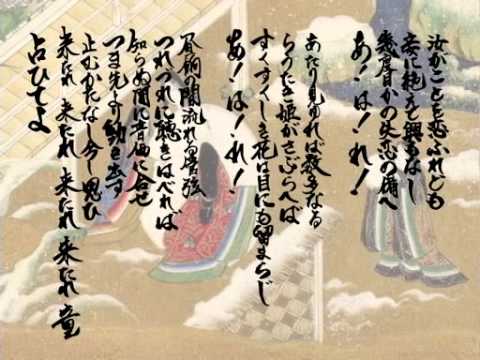 汝がことを恋ふれども
吾に絶えて興もなし
幾度目かの失恋の備へ
あ!は!れ!
あたり見ゆれば数多なる
らうたき娘がさぶらへば
すくすくしき花は目にも留まらじ
あ!は!れ!
昼餉の間流れる管弦
つれづれに聴きはべれば
知らぬ間に音曲に合せ
つま先より動き出す
止むかたなし今し思ひ
来たれ 来たれ 来たれ 来たれ 童
占ひてよ